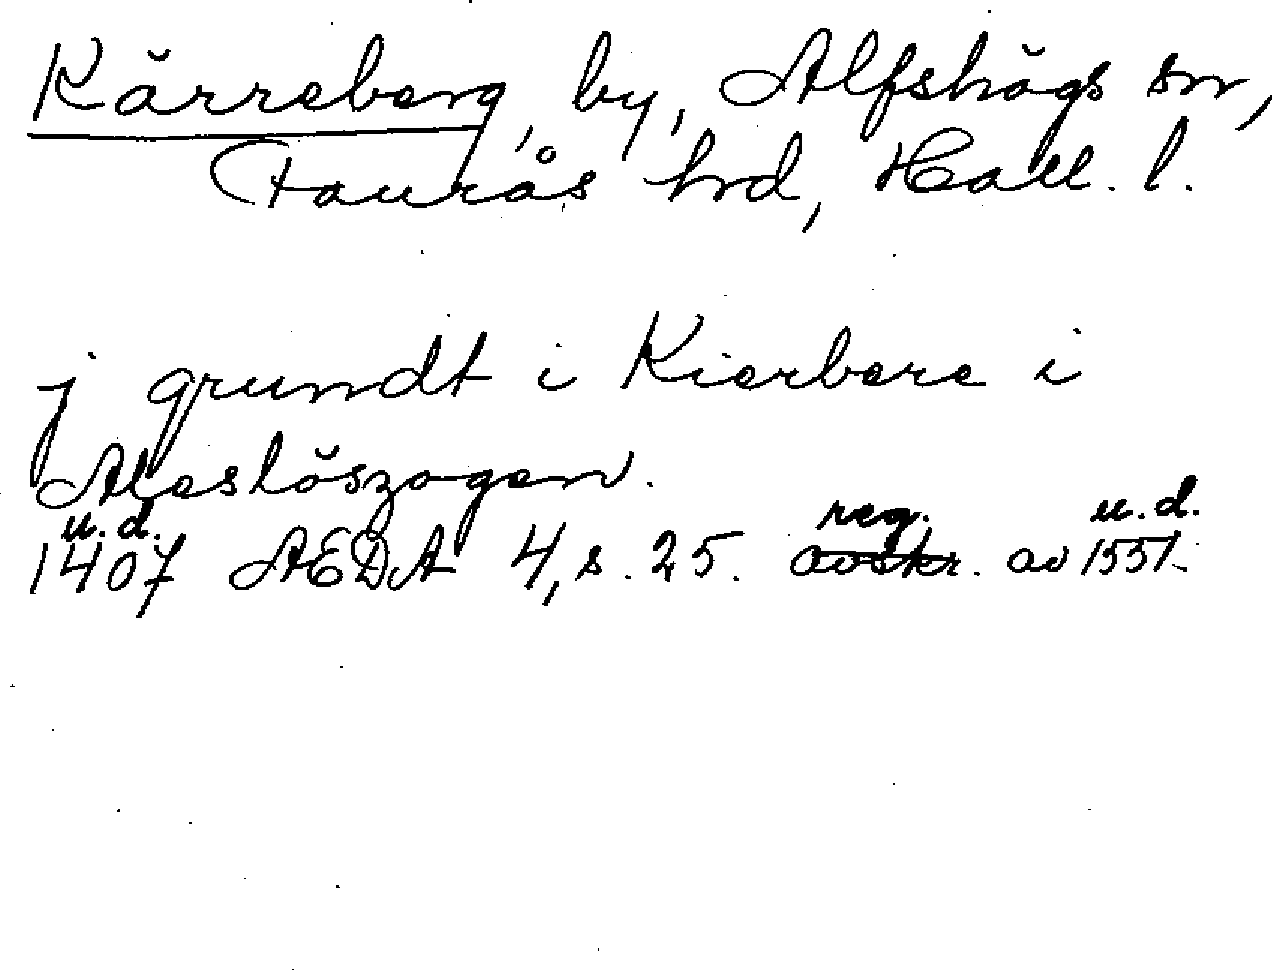 Kärreberg, by, Alfshögs sn,
Faurås hrd, Hall. l.
j grundt i Kierbere i
Aleslöszogen.
u.d. reg. u.d.
1407 AEDA 4, s. 25. avskr. av 1551.